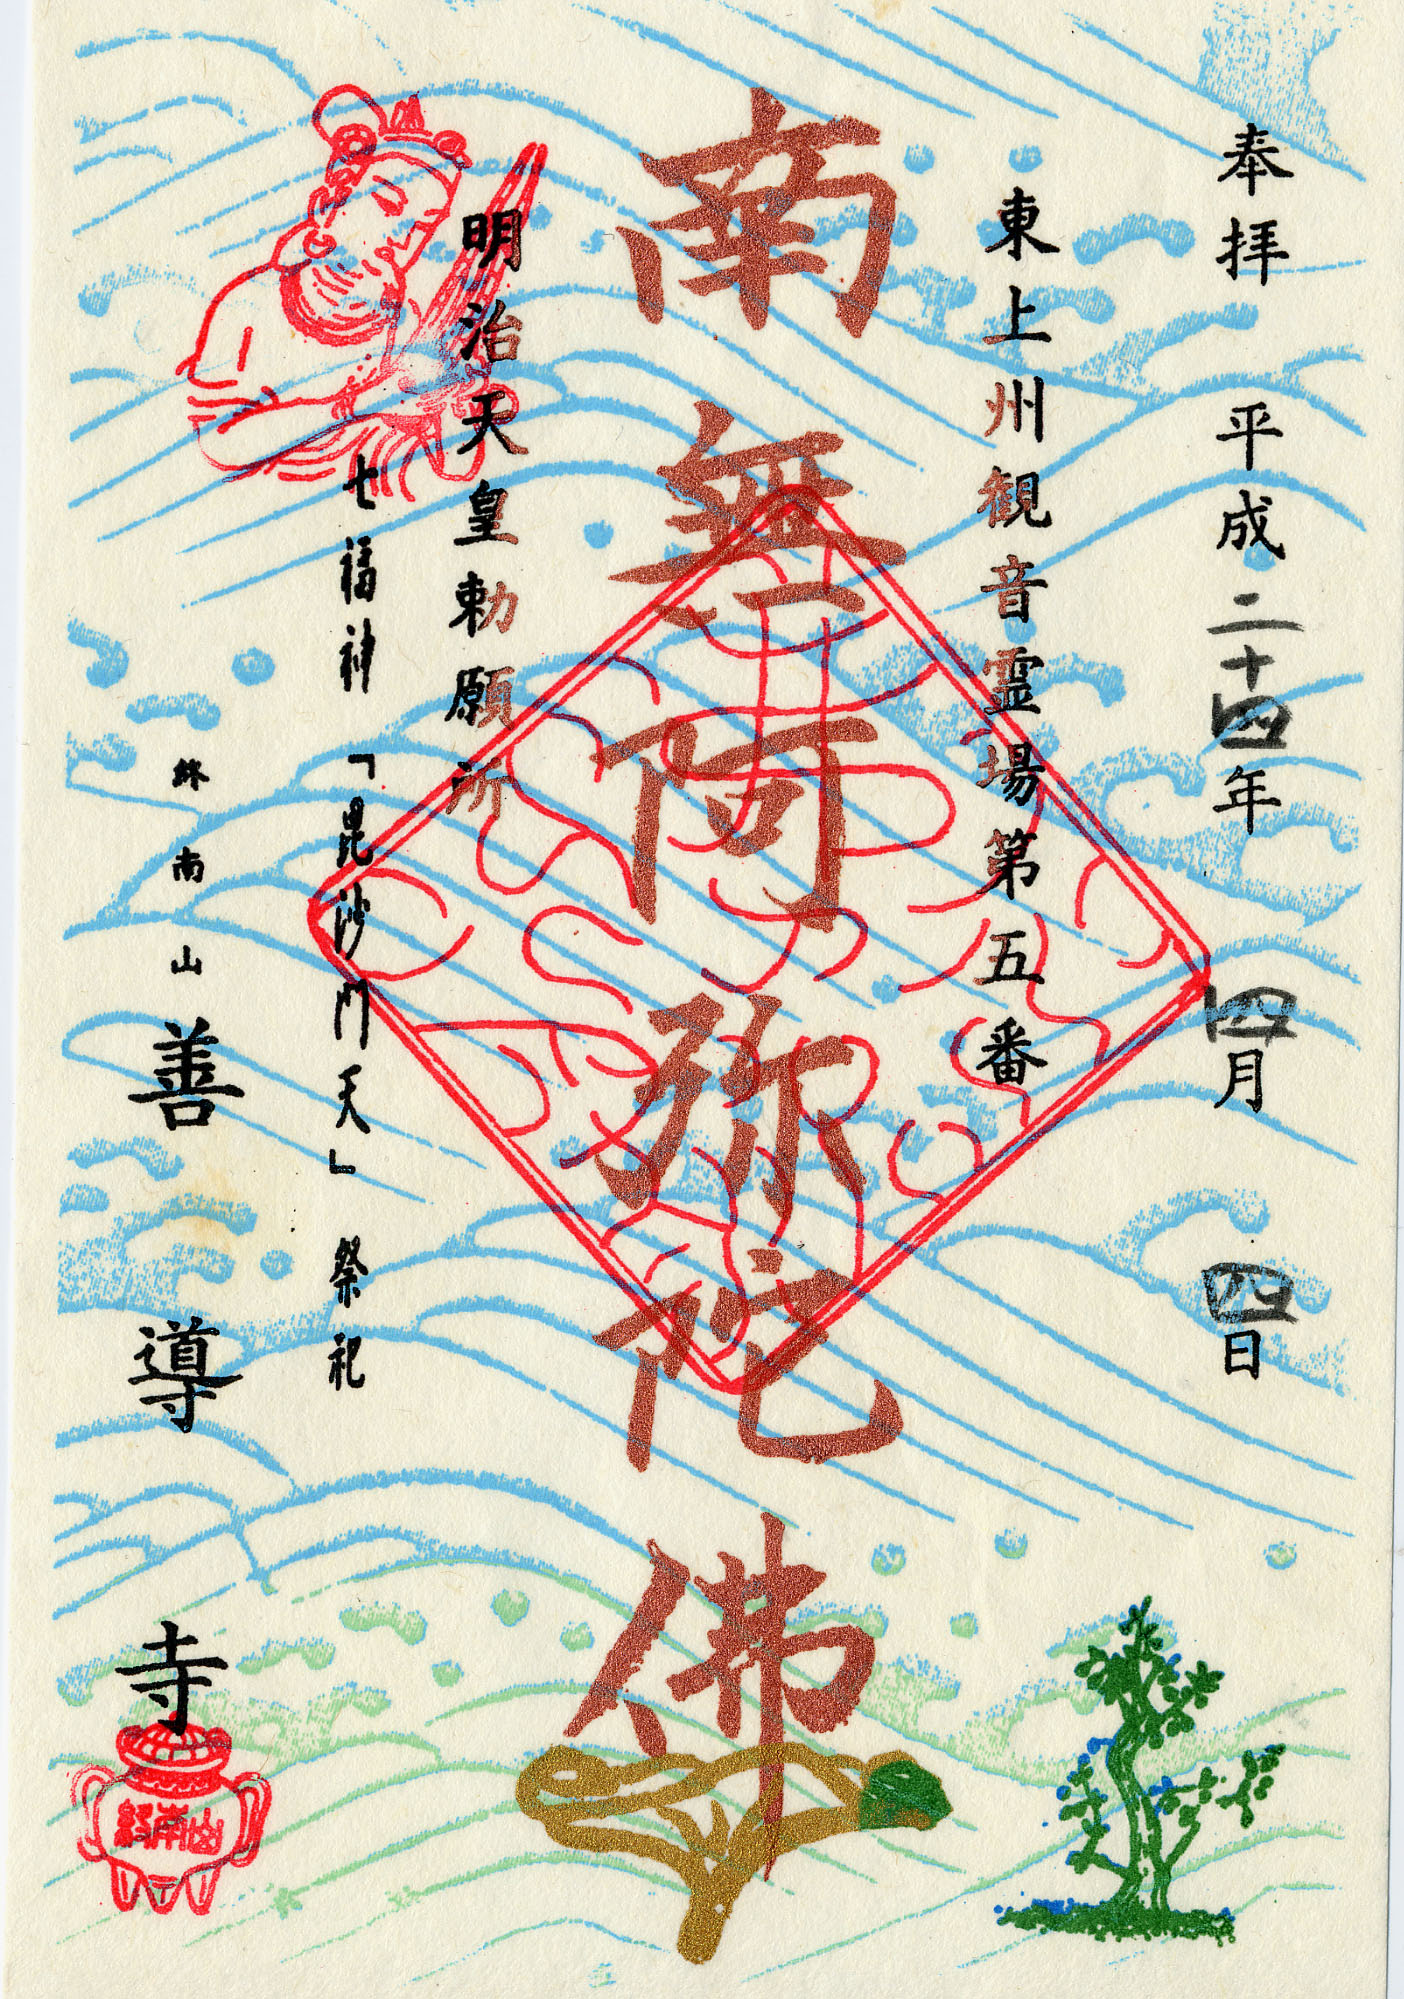 奉拝 平成二十四年 四月 四日
東上州観音霊場第五番
南無阿弥陀佛
明治天皇勅願所
七福神「毘沙門天」祭祀
終南山 善導寺
終南山